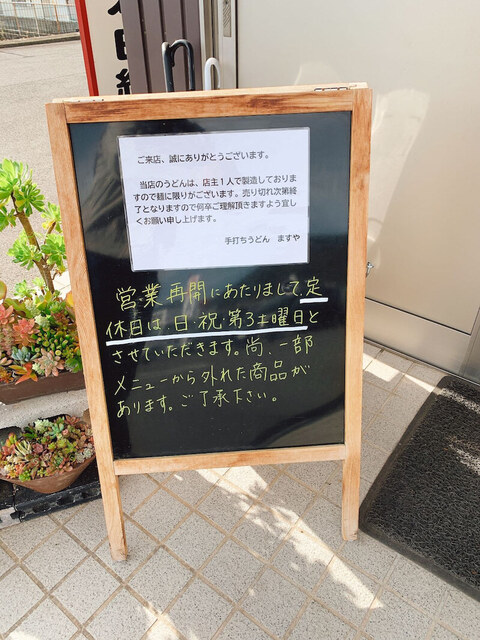 ご来店、誠にありがとうございます。
当店のうどんは、店主1人で製造しておりま
すので麺に限りがございます。売り切れ次第終
了となりますので何卒ご理解頂きますよう宜し
くお願い申し上げます。
手打ちうどん　ますや
営業再開にあたりまして、定
休日は、日・祝・第3土曜日と
させていただきます。尚、一部
メニューから外れた商品が
あります。ご了承下さい。